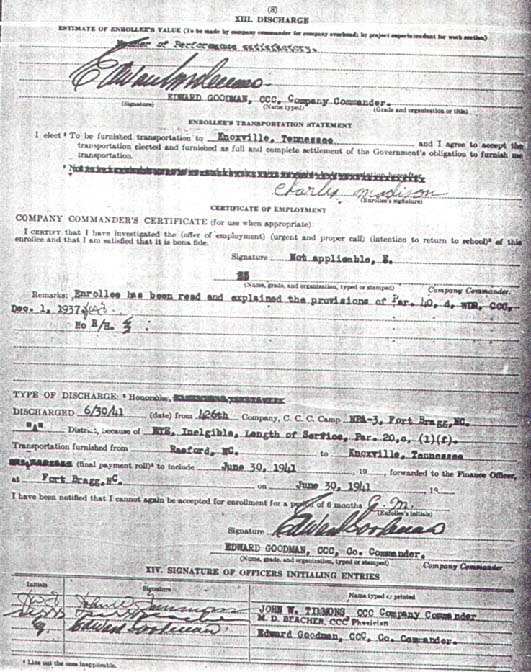 (8)
XIII. DISCHARGE
ESTIMATE OF ENROLLEE'S VALUE (To be made by company commander for company overhead; by project superintendent for work section)
of Performance satisfactory.
EDWARD GOODMAN, CCC, Company Commander.
(Signature) (Name typed) (Grade and organization or title)
ENROLLEE'S TRANSPORTATION STATEMENT
I elect ² To be furnished transportation to Knoxville, Tennessee and I agree to accept the
transportation elected and furnished as full and complete settlement of the Government's obligation to furnish me
transportation.
Charlie Madison
(Enrollee's signature)
CERTIFICATE OF EMPLOYMENT
COMPANY COMMANDER'S CERTIFICATE (for use when appropriate)
I CERTIFY that I have investigated the (offer of employment) (urgent and proper call) (intention to return to school)² of this
enrollee and that I am satisfied that it is bona fide.
Signature Not applicable,
(Name, grade, and organization, typed or stamped) Company Commander
Remarks: Enrollee has been read and explained the provisions of Par. 40, d, WDR, CCC,
Dec. 1, 1937
No E/H.
TYPE OF DISCHARGE: ² Honorable,
DISCHARGED 6/30/41 (date) from 426th Company, C. C. C. Camp Fort Bragg, NC.
"A" District, because of ETS, Inelgible, Length of Serfice, Par. 20,c, (1)(f).
Transportation furnished from Raeford, NC. to Knoxville, Tennessee
(final payroll)² to include June 30, 1941 19 forwarded to the Finance Officer,
at Fort Bragg, NC. on June 30, 1941 19
I have been notified that I cannot again be accepted for enrollment for a period of 6 months C. M.
(Enrollee's initials)
Signature Edward Goodman
EDWARD GOODMAN, CCC, Co. Commander.
(Name, grade, and organization, typed or stamped) Company Commander
XIV. SIGNATURE OF OFFICERS INITIALING ENTRIES
Initials Signature Name typed or printed
JOHN W. TIMMONS CCC Company Commander
M. D. BEACHER, CCC Physician
Edward Goodman Edward Goodman, CCC, Co. Commander.
² Line out the ones inapplicable.